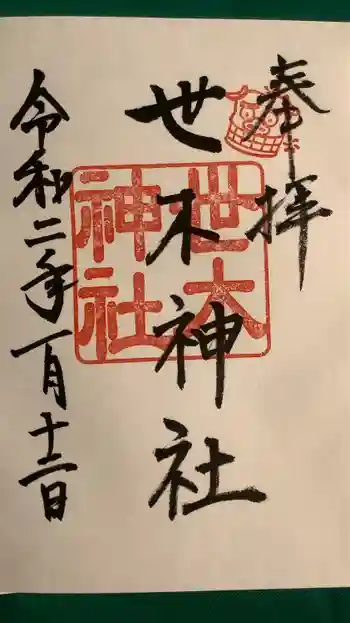 奉拝
世木神社
世木神社
令和二年一月十二日